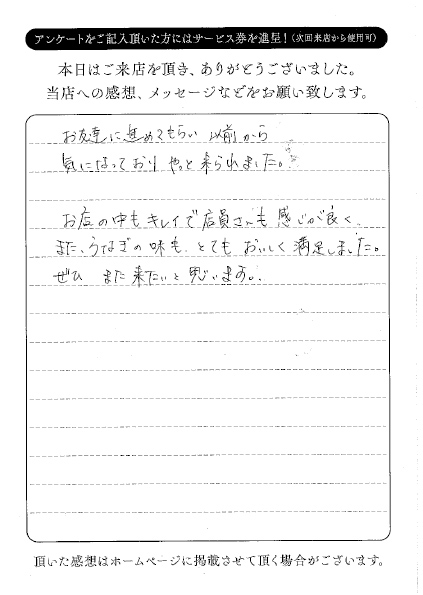 アンケートをご記入頂いた方にはサービス券を進呈！（次回来店から使用可）
本日はご来店を頂き、ありがとうございました。
当店への感想、メッセージなどをお願い致します。
お友達に進めてもらい 以前から
気になっており やっと来られました。
お店の中もキレイで店員さんも感じが良く、
また、うなぎの味も、とてもおいしく満足しました。
ぜひ また来たいと思います。
頂いた感想はホームページに掲載させて頂く場合がございます。